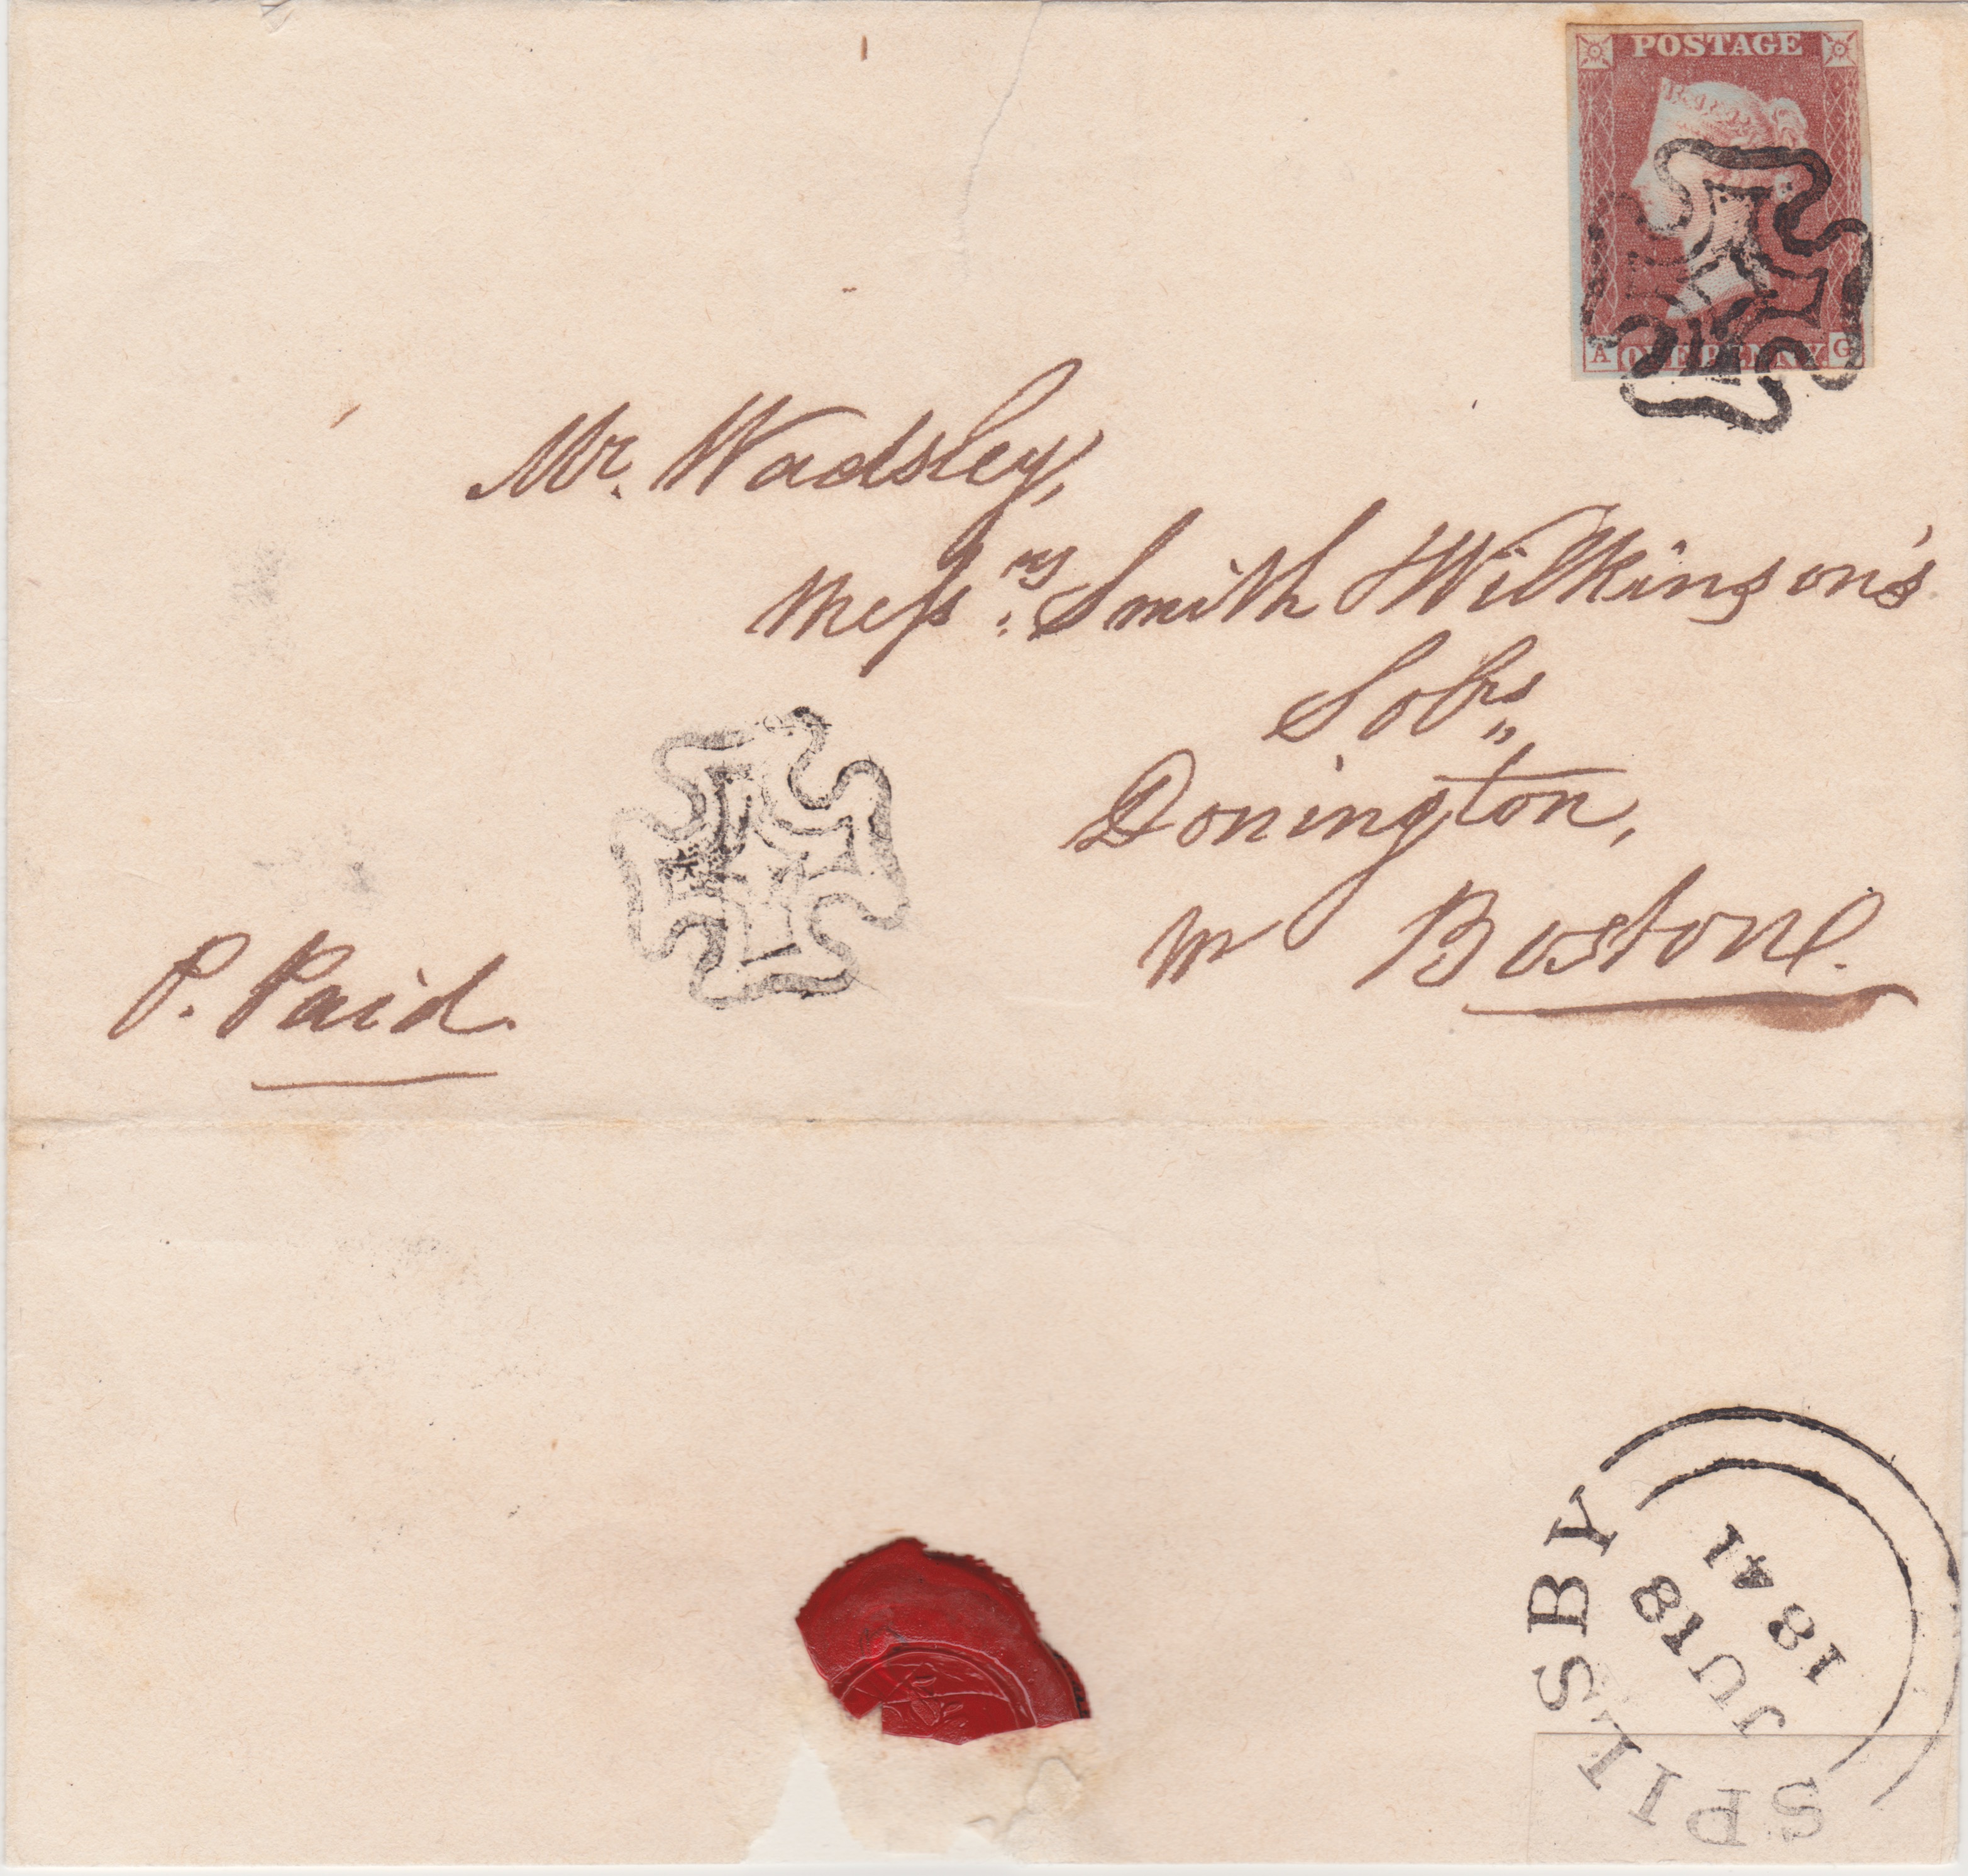 POSTAGE
A ONE PENNY G
Mr. Wadsley,
Messrs. Smith & Wilkinson's
Solrs,,
Donington,
nr Boston.
P. Paid.
SPILSBY
JU 18
1841